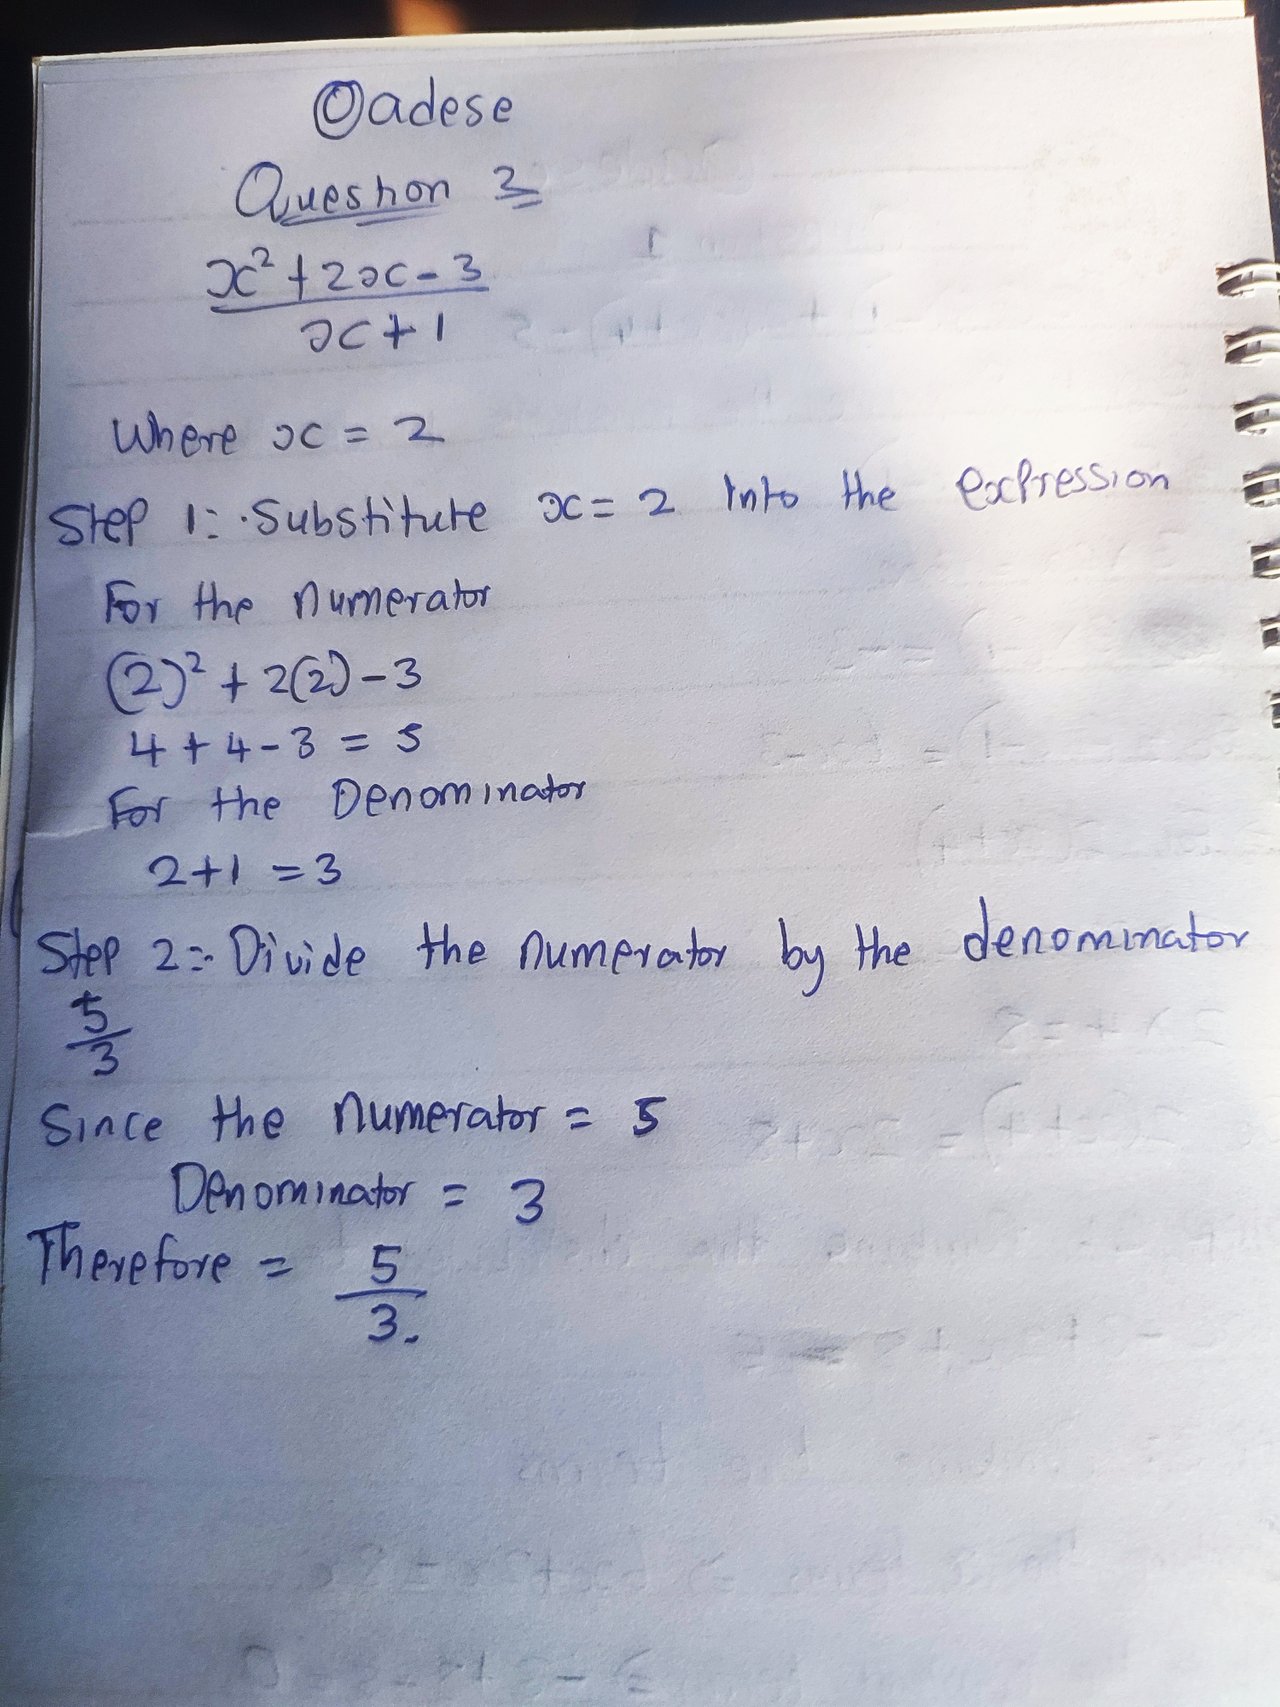 @oadese
Question 3
x² + 2x - 3
x + 1
Where x = 2
Step 1:- Substitute x = 2 Into the expression
For the numerator
(2)² + 2(2) - 3
4 + 4 - 3 = 5
For the Denominator
2 + 1 = 3
Step 2:- Divide the numerator by the denominator
5
3
Since the numerator = 5
Denominator = 3
Therefore = 5
3.